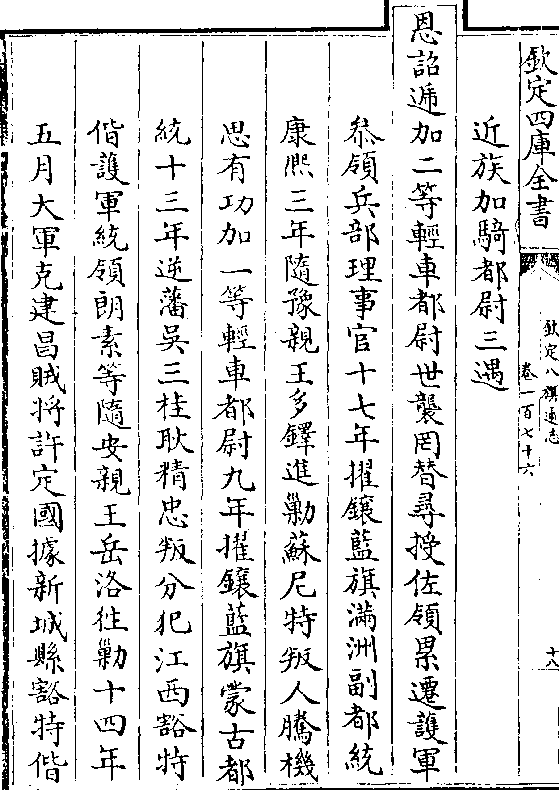 欽定四庫全書
欽定八旗通志
卷一百七十六
十八
近族加騎都尉三遇
恩詔遞加二等輕車都尉世襲罔替尋授佐領累遷護軍
叅領兵部理事官十七年擢鑲藍旗滿洲副都統
康熙三年隨豫親王多鐸進勦蘇尼特叛人騰機
思有功加一等輕車都尉九年擢鑲藍旗蒙古都
統十三年逆藩吳三桂耿精忠叛分犯江西豁特
偕護軍統領朗素等隨安親王岳洛徃勦十四年
五月大軍克建昌賊將許定國據新城縣豁特偕